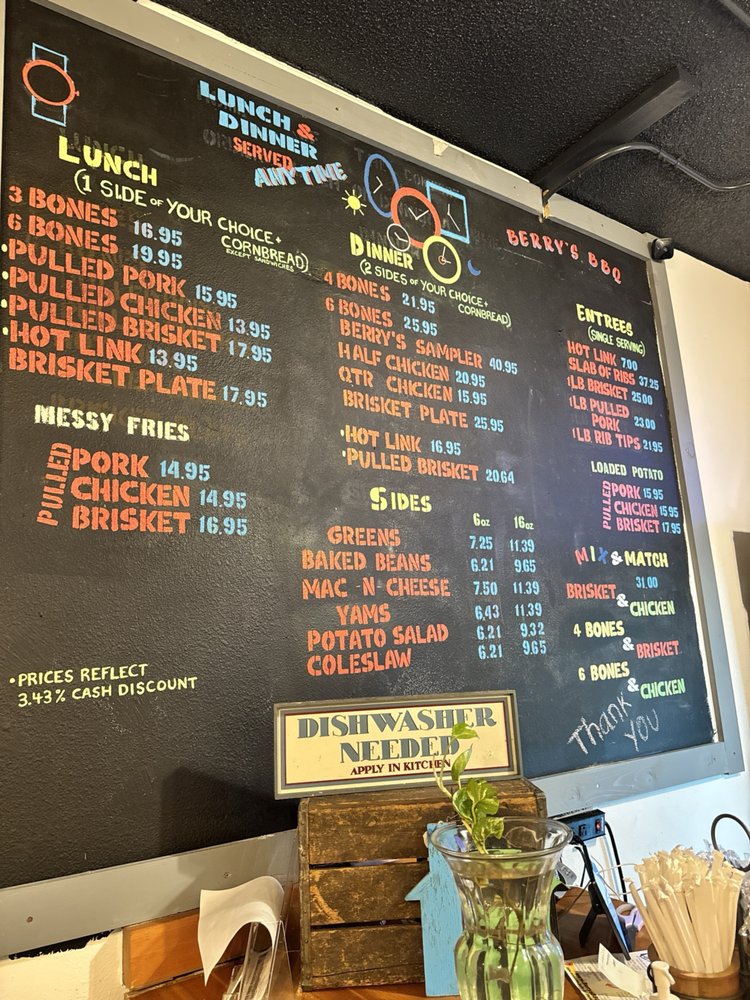 LUNCH &
DINNER
SERVED
ANYTIME
LUNCH
(1 SIDE OF YOUR CHOICE +
CORNBREAD)
EXCEPT SANDWICHES
3 BONES 16.95
6 BONES 19.95
•PULLED PORK 15.95
•PULLED CHICKEN 13.95
•PULLED BRISKET 17.95
•HOT LINK 13.95
BRISKET PLATE 17.95
MESSY FRIES
PULLED
PORK 14.95
CHICKEN 14.95
BRISKET 16.95
•PRICES REFLECT
3.43% CASH DISCOUNT
DINNER
(2 SIDES OF YOUR CHOICE +
CORNBREAD)
4 BONES 21.95
6 BONES 25.95
BERRY'S SAMPLER 40.95
HALF CHICKEN 20.95
QTR CHICKEN 15.95
BRISKET PLATE 25.95
•HOT LINK 16.95
•PULLED BRISKET 20.64
SIDES 6oz 16oz
GREENS 7.25 11.39
BAKED BEANS 6.21 9.65
MAC -N- CHEESE 7.50 11.39
YAMS 6.43 11.39
POTATO SALAD 6.21 9.32
COLESLAW 6.21 9.65
BERRY'S BBQ
ENTREES
(SINGLE SERVING)
HOT LINK 7.00
SLAB OF RIBS 37.25
1LB BRISKET 25.00
1LB PULLED
PORK 23.00
1LB RIB TIPS 21.95
LOADED POTATO
PULLED
PORK 15.95
CHICKEN 15.95
BRISKET 17.95
MIX & MATCH
31.00
BRISKET
& CHICKEN
4 BONES
& BRISKET
6 BONES
& CHICKEN
Thank
You
DISHWASHER
NEEDED
APPLY IN KITCHEN